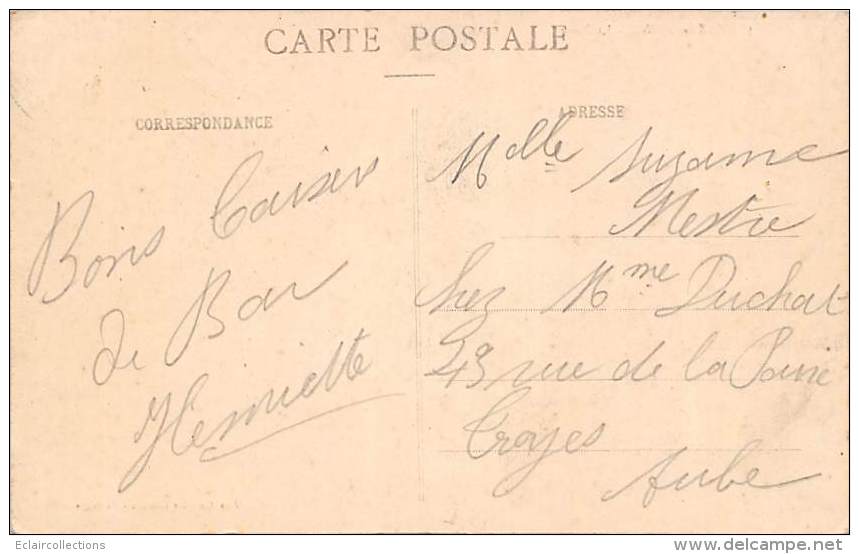 CARTE POSTALE
CORRESPONDANCE
Bons Baisers
de Bar
Henriette
ADRESSE
Melle Suzanne
Mestre
chez Mme Duchat
23 rue de la Paix
Troyes
Aube
Eclaircollections
www.delcampe.net